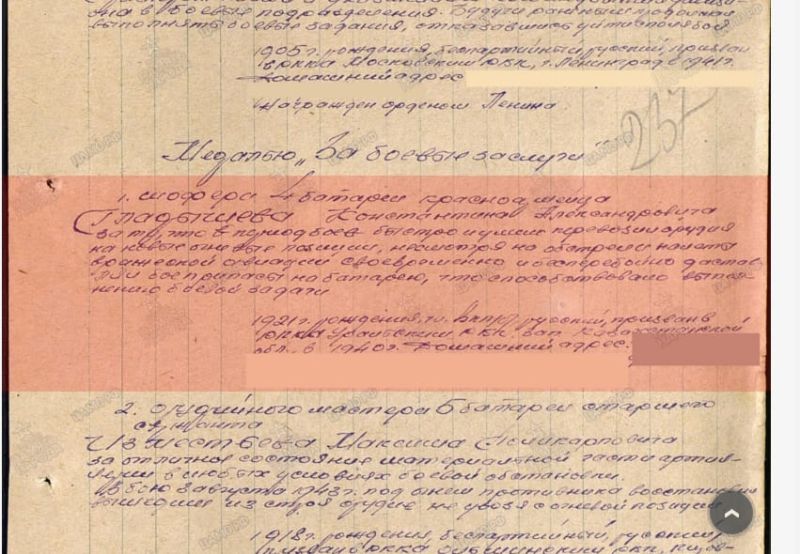 на в боевые подразделения. Будучи раненым продолжал
выполнять боевые задания, отказавшись уйти с поля боя
1905 г. рождения, беспартийный, русский, призван
в РККА Московским РВК, г. Ленинград в 1941 г.
Домашний адрес
Награжден орденом Ленина.
237
Медалью „За боевые заслуги"
1. шофера 4 батареи красноармейца
Гладышева Константина Александровича
за то, что в период боев быстро и умело перевозил орудия
на новые огневые позиции, несмотря на обстрел и налеты
вражеской авиации своевременно и бесперебойно достав-
лял боеприпасы на батарею, что способствовало выпол-
нению боевой задачи
1921 г. рождения, русский, призван в
РККА РВК. Зап. Казахстанской
обл. в 1940 г. Домашний адрес:
2. орудийного мастера 6 батареи старшего
сержанта
Известьева Максима Поликарповича
за отличное состояние материальной части артил-
лерии в любых условиях боевой обстановки.
В бою 3 августа 1943 г. под огнем противника восстановил
вышедшее из строя орудие не увозя с огневой позиции
1918 г. рождения, беспартийный, русский,
призван в РККА РВК,